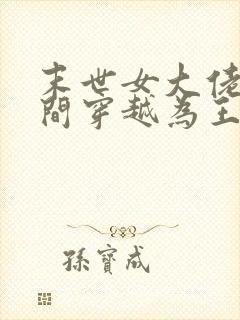 末世女大佬
間穿越為王
孫寶成